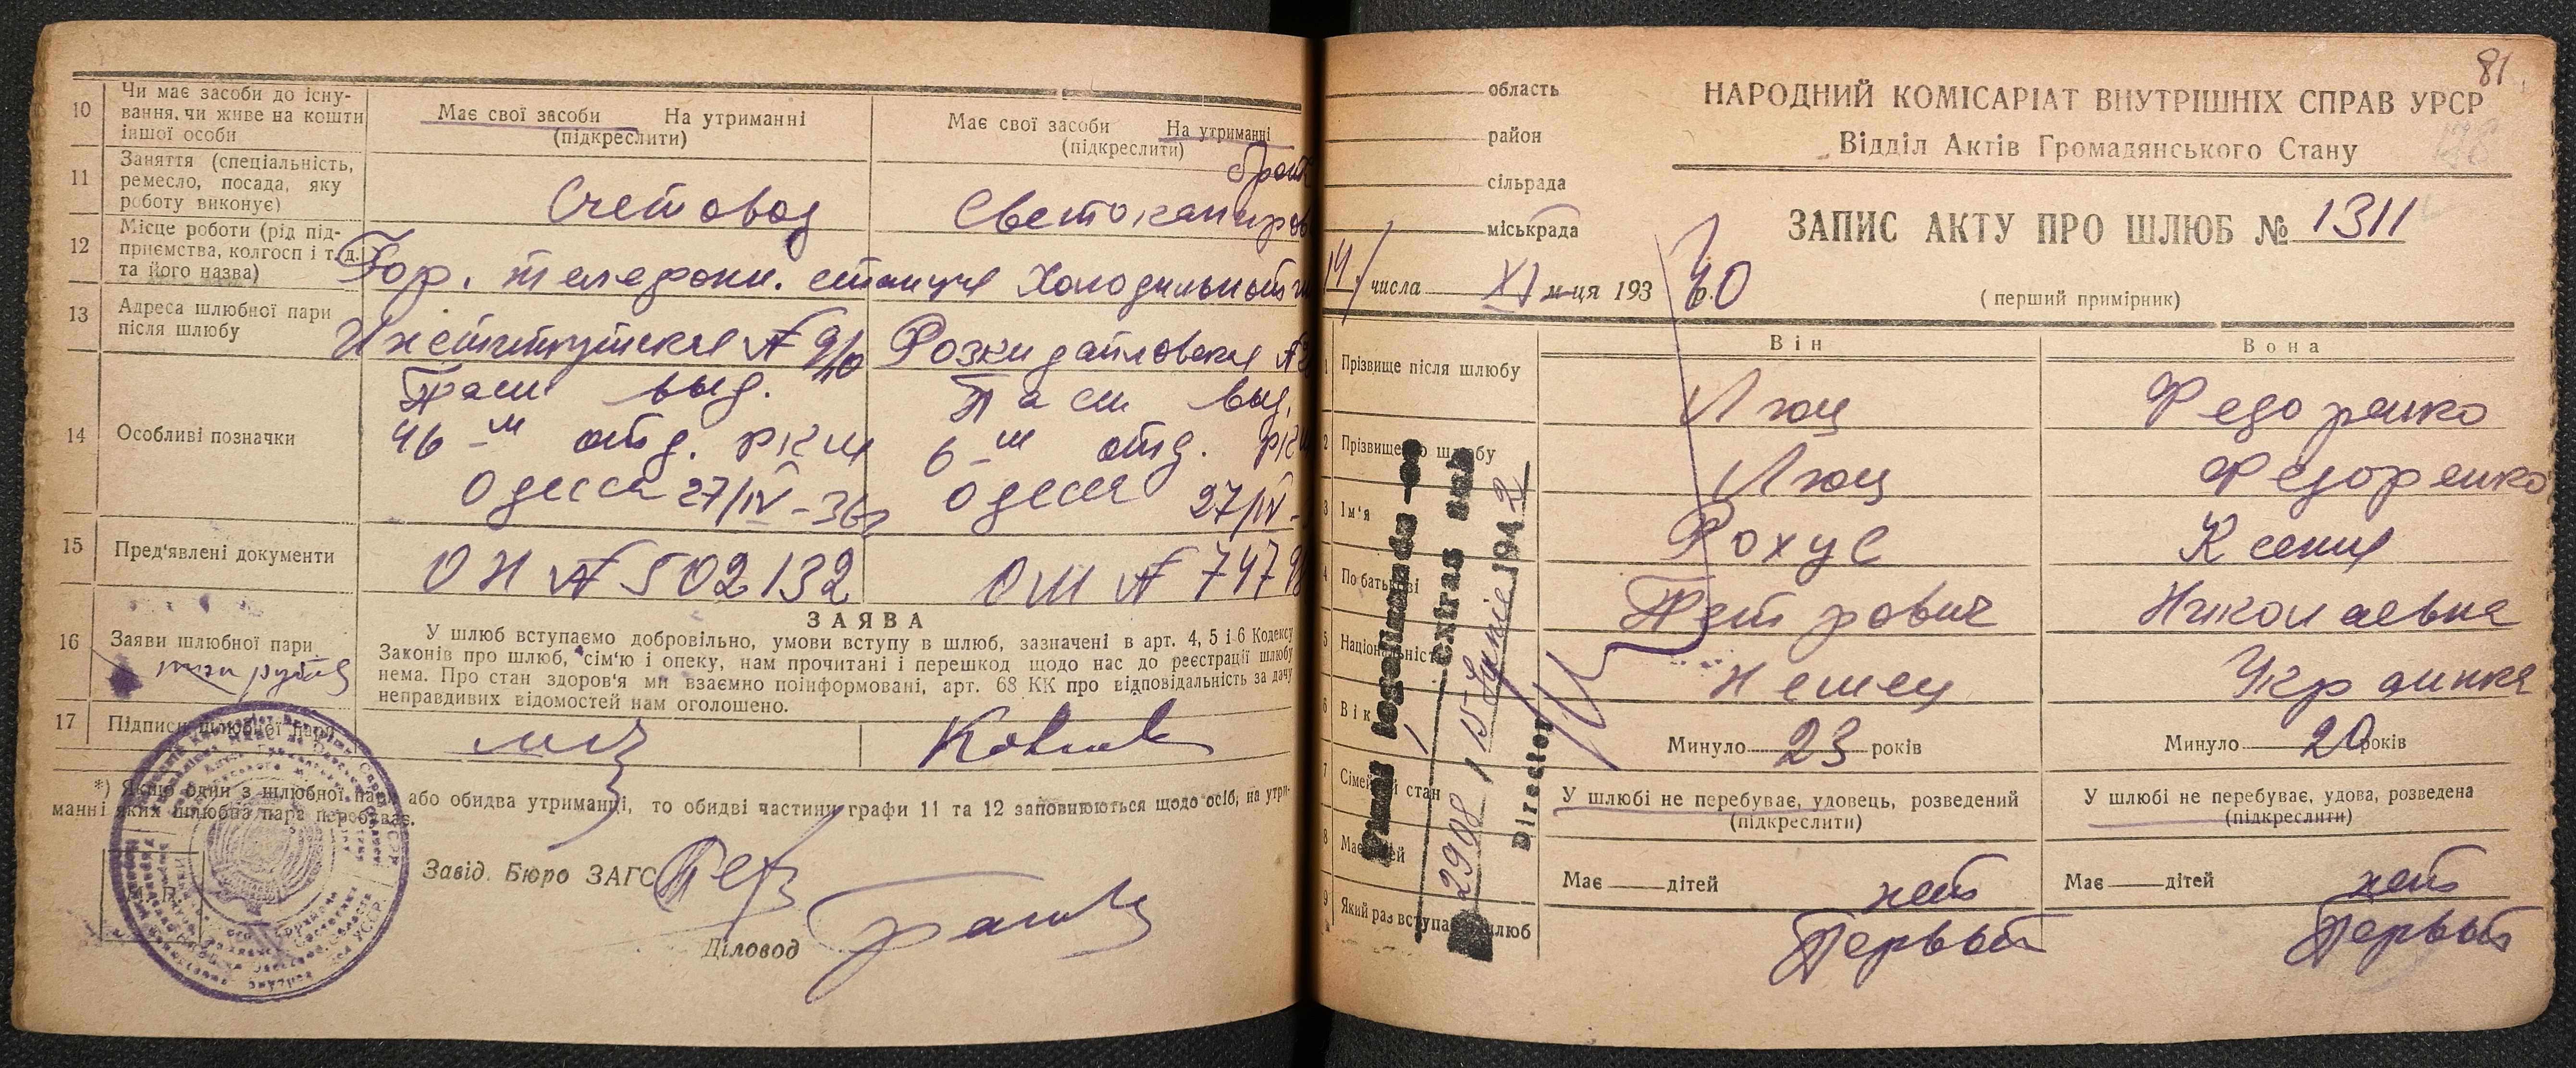 10 Чи має засоби до існу-
вання, чи живе на кошти
іншої особи
Має свої засоби На утриманні
(підкреслити)
Має свої засоби На утриманні
(підкреслити)
11 Заняття (спеціальність,
ремесло, посада, яку
роботу виконує)
Счетовод
12 Місце роботи (рід під-
приємства, колгосп і т. д.
та його назва)
Гор. телефон. станция
13 Адреса шлюбної пари
після шлюбу
14 Особливі позначки
Пасп выд.
46-м отд. РКМ
Одесса 27/IV-36г
Пасп выд.
6-м отд.
Одесса 27/IV-
15 Пред'явлені документи
ОН № 502132
ОШ № 747
ЗАЯВА
16 Заяви шлюбної пари
три рубля
У шлюб вступаємо добровільно, умови вступу в шлюб, зазначені в арт. 4, 5 і 6 Кодексу
Законів про шлюб, сім'ю і опеку, нам прочитані і перешкод щодо нас до реєстрації шлюбу
нема. Про стан здоров'я ми взаємно поінформовані, арт. 68 КК про відповідальність за дачу
неправдивих відомостей нам оголошено.
17 Підписи шлюбної пари
*) Якщо один з шлюбної пари або обидва утриманці, то обидві частини графи 11 та 12 заповнюються щодо осіб, на утри-
манні яких шлюбна пара перебуває.
Завід. Бюро ЗАГС
Діловод
81
область
район
сільрада
міськрада
14 числа XI м-ця 193 р. 40
НАРОДНИЙ КОМІСАРІАТ ВНУТРІШНІХ СПРАВ УРСР
Відділ Актів Громадянського Стану
ЗАПИС АКТУ ПРО ШЛЮБ № 1311
(перший примірник)
Він Вона
1 Прізвище після шлюбу Люц Федоренко
2 Прізвище до шлюбу Люц Федоренко
3 Ім'я Рохус Ксения
4 По батькові Петрович Николаевна
5 Національність Немец Украинка
6 Вік Минуло 23 років Минуло 20 років
7 Сімейний стан
У шлюбі не перебуває, удовець, розведений
(підкреслити)
У шлюбі не перебуває, удова, розведена
(підкреслити)
8 Має дітей
Має дітей нет Має дітей нет
9 Який раз вступає в шлюб Первый Первый
extras sub
1942
Director